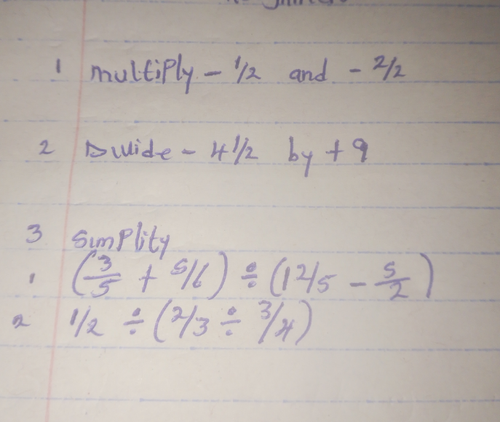 1 multiply - 1/2 and - 2/2
2 Divide - 4 1/2 by + 9
3 Simplity
1 (3/5 + 5/6) ÷ (12/5 - 5/2)
2 1/2 ÷ (2/3 ÷ 3/4)